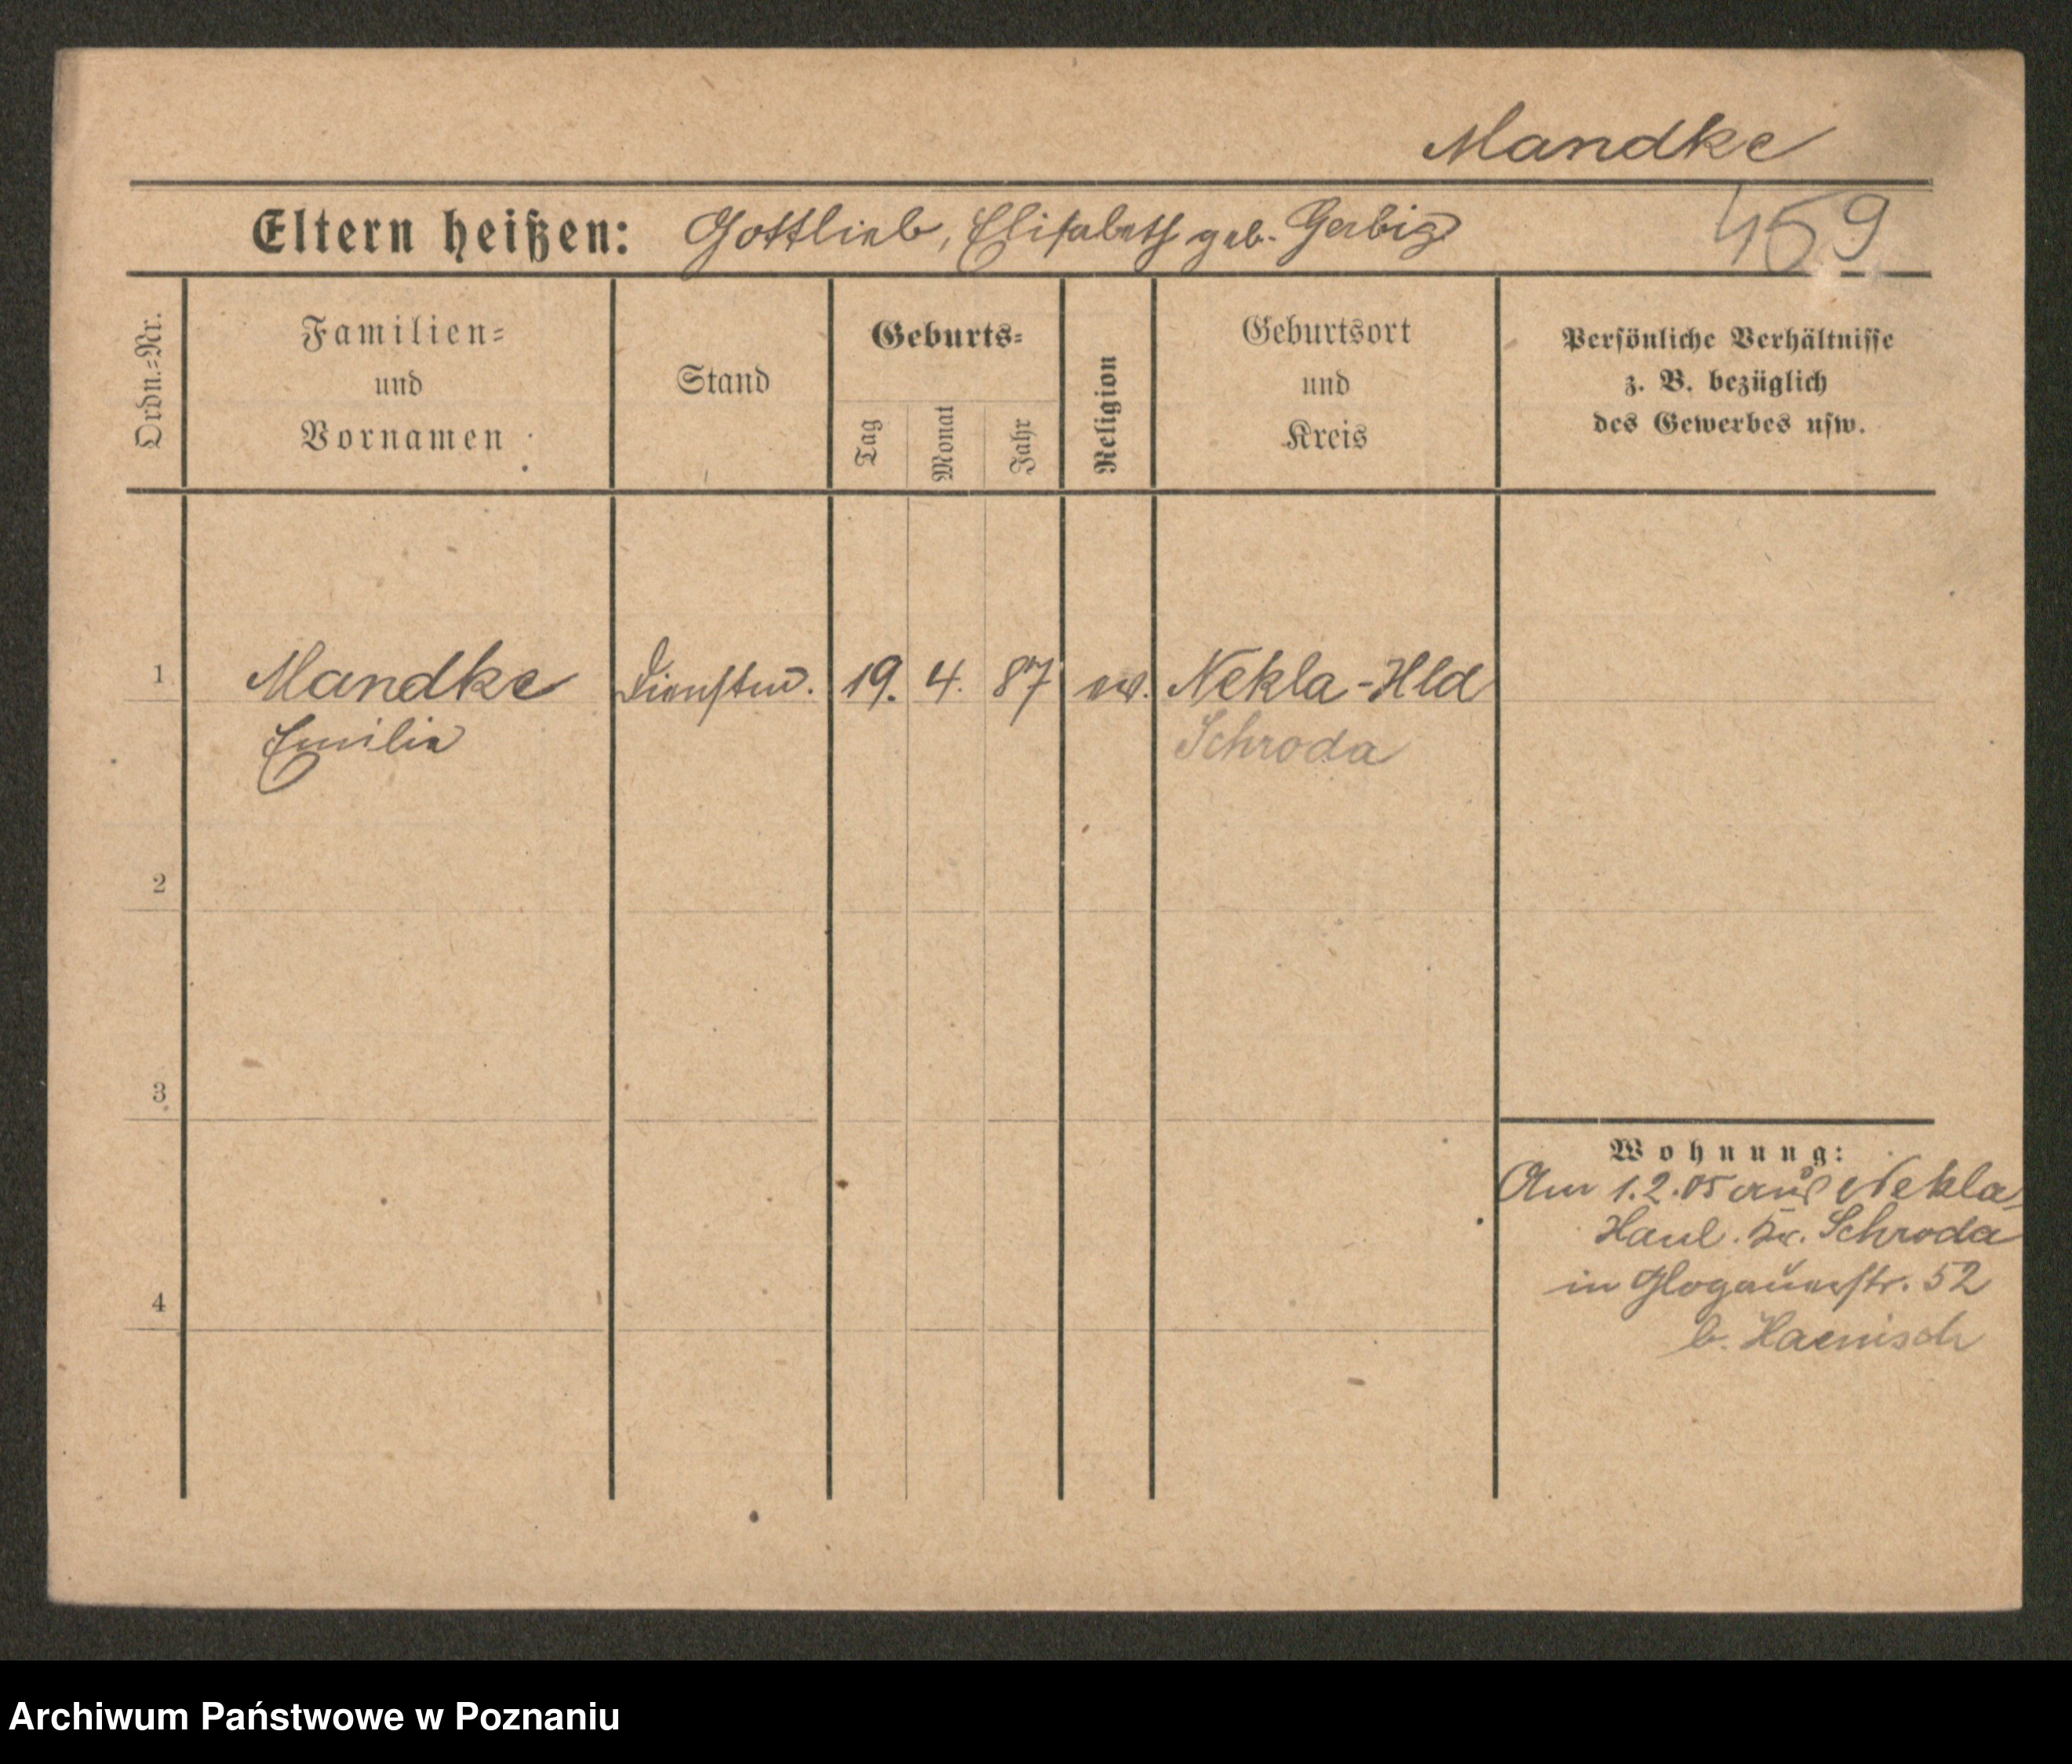 Mandke
Eltern heißen: Gottlieb, Elisabeth geb. Gerbig
459
Ordn.=Nr.
Familien=
und
Vornamen
Stand
Geburts=
Tag
Monat
Jahr
Religion
Geburtsort
und
Kreis
Persönliche Verhältnisse
z. B. bezüglich
des Gewerbes usw.
1 Mandke Dienstm. 19. 4. 87 ev. Nekla-Hld
Emilie Schroda
2
3
4
Wohnung:
Am 1.2.05 aus Nekla
Haul. Kr. Schroda
in Glogauerstr. 52
b. Haenisch
Archiwum Państwowe w Poznaniu